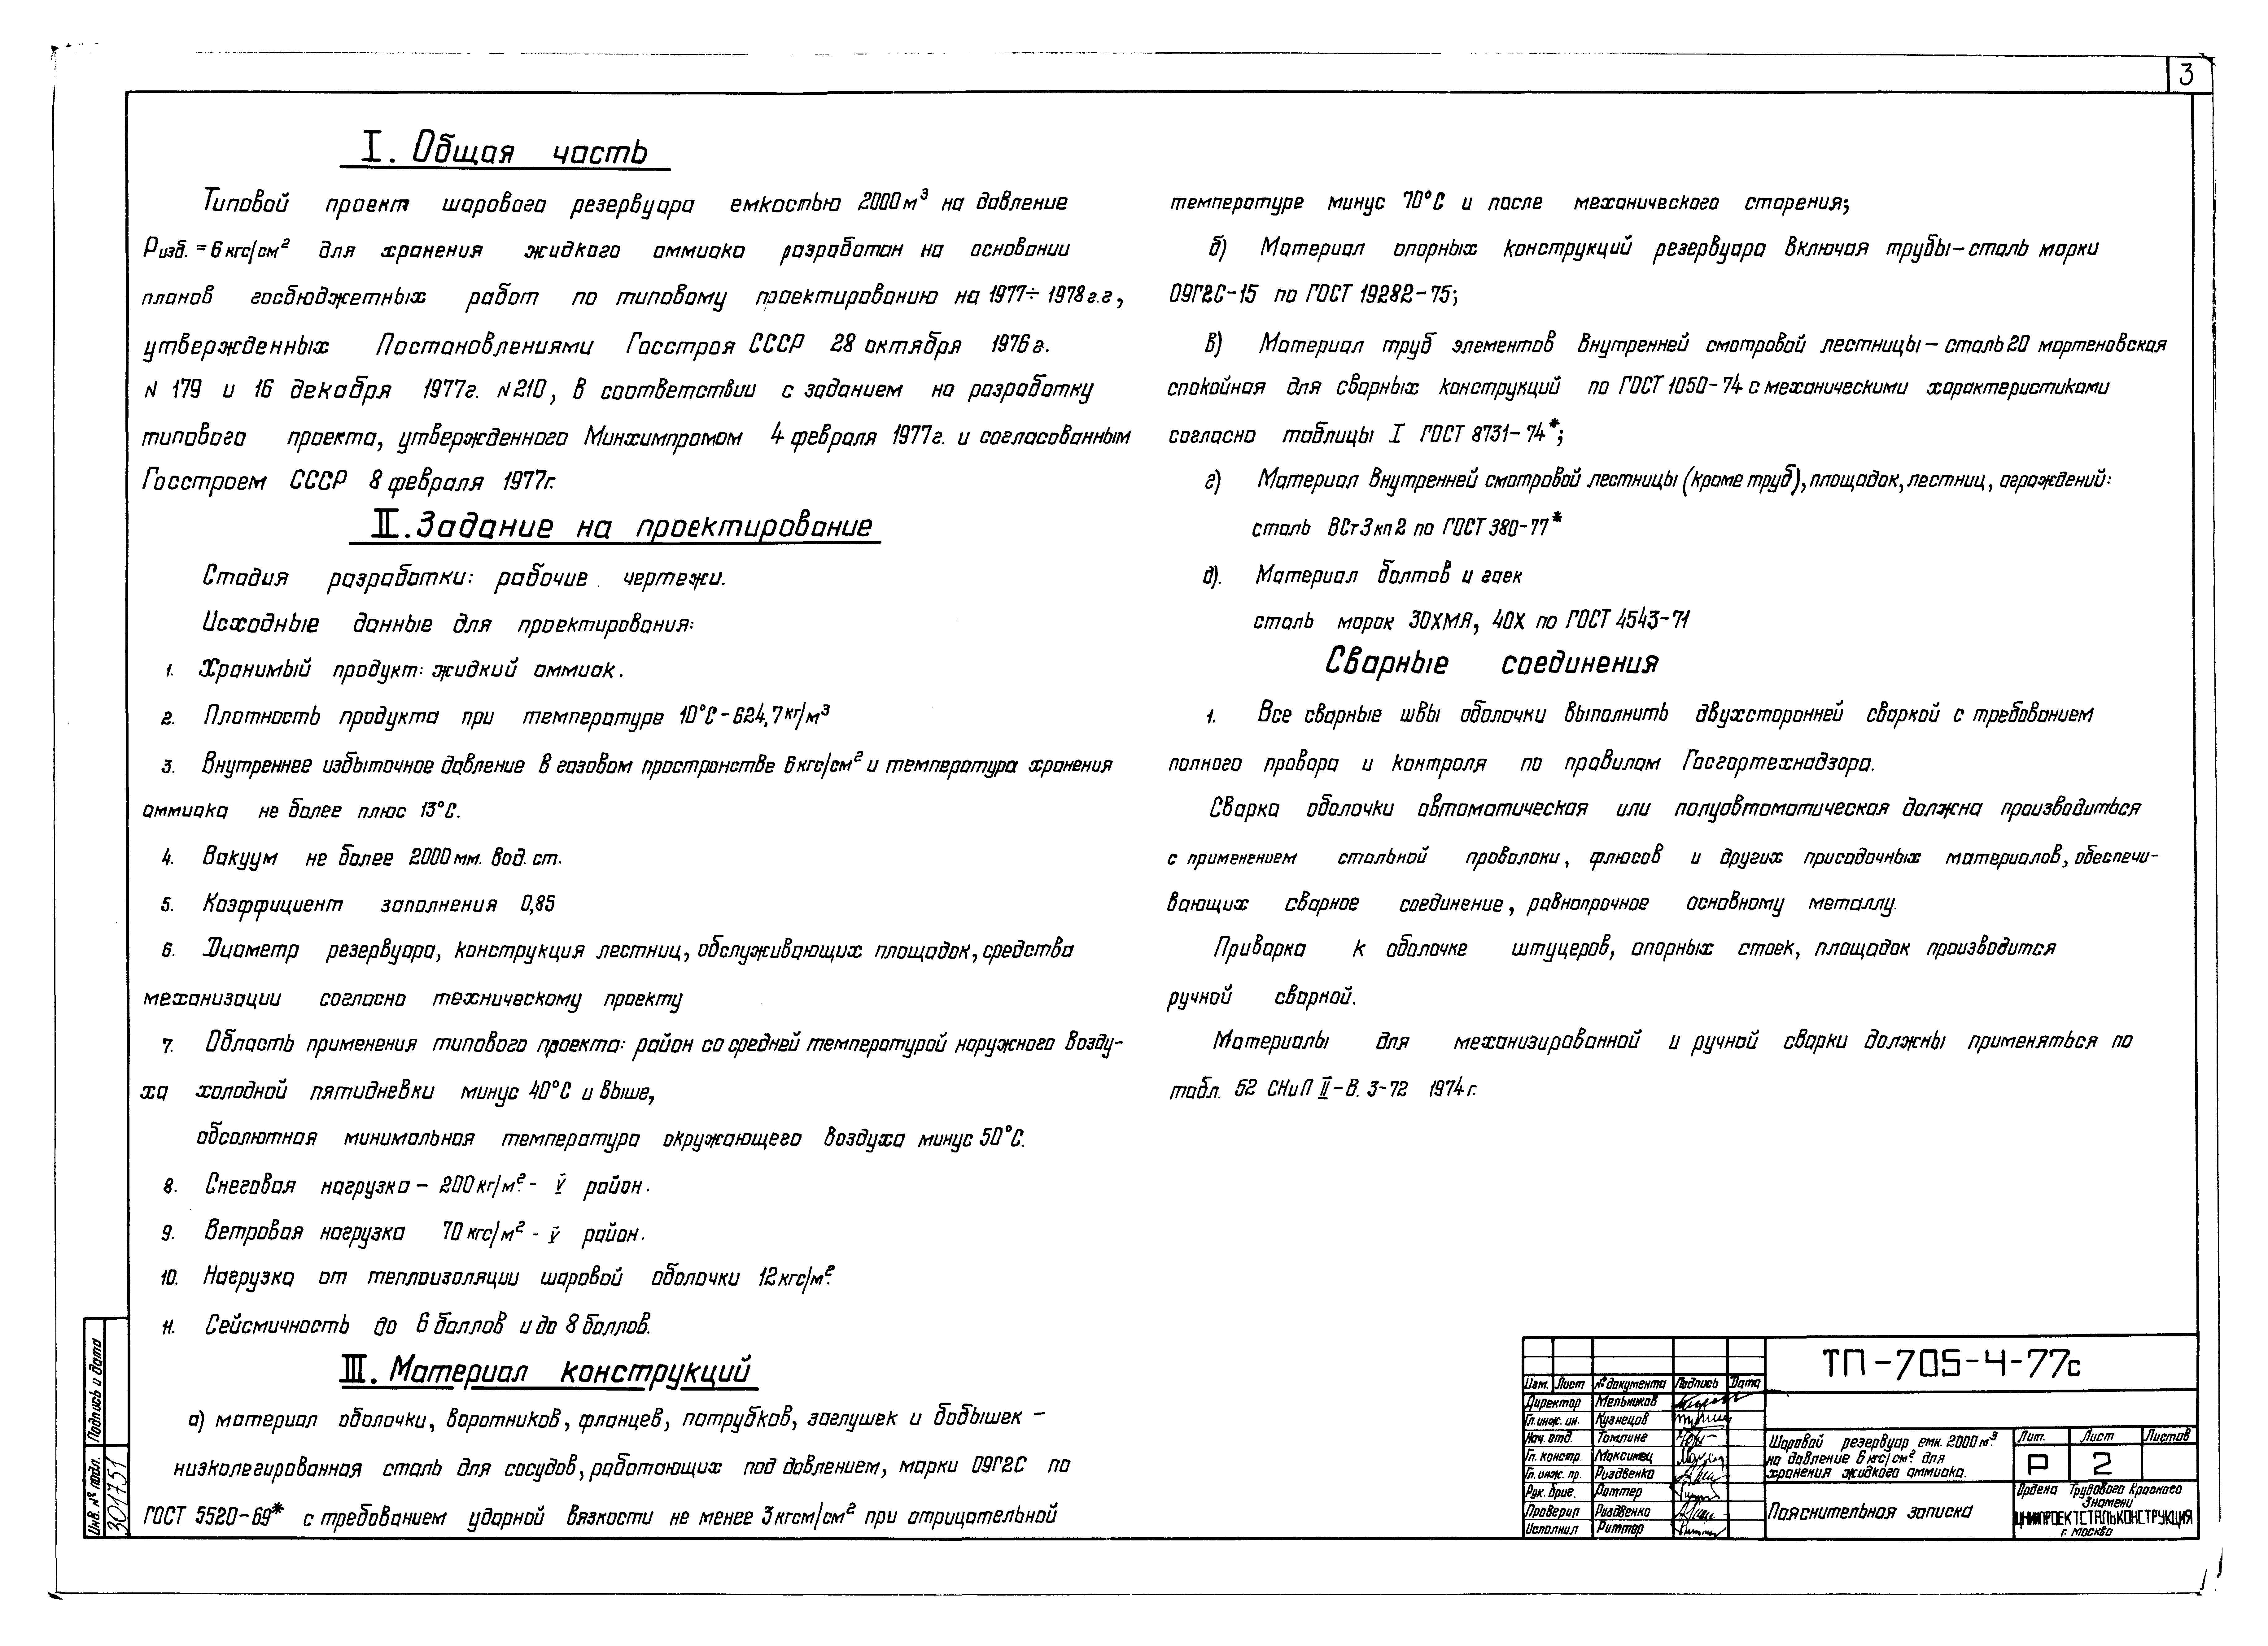 3
I. Общая часть
Типовой проект шарового резервуара емкостью 2000 м³ на давление
Ризб. = 6 кгс/см² для хранения жидкого аммиака разработан на основании
планов госбюджетных работ по типовому проектированию на 1977÷1978 г.г,
утвержденных Постановлениями Госстроя СССР 28 октября 1976 г.
N 179 и 16 декабря 1977г. N210, в соответствии с заданием на разработку
типового проекта, утвержденного Минхимпромом 4 февраля 1977г. и согласованным
Госстроем СССР 8 февраля 1977г.
II. Задание на проектирование
Стадия разработки: рабочие чертежи.
Исходные данные для проектирования:
1. Хранимый продукт: жидкий аммиак.
2. Плотность продукта при температуре 10°С - 624,7 кг/м³
3. Внутреннее избыточное давление в газовом пространстве 6 кгс/см² и температура хранения
аммиака не более плюс 13°С.
4. Вакуум не более 2000 мм. вод. ст.
5. Коэффициент заполнения 0,85
6. Диаметр резервуара, конструкция лестниц, обслуживающих площадок, средства
механизации согласно техническому проекту
7. Область применения типового проекта: район со средней температурой наружного возду-
ха холодной пятидневки минус 40°С и выше,
абсолютная минимальная температура окружающего воздуха минус 50°С.
8. Снеговая нагрузка – 200 кг/м² - V район.
9. Ветровая нагрузка 70 кгс/м² - V район.
10. Нагрузка от теплоизоляции шаровой оболочки 12 кгс/м².
11. Сейсмичность до 6 баллов и до 8 баллов.
III. Материал конструкций
а) материал оболочки, воротников, фланцев, патрубков, заглушек и бобышек –
низколегированная сталь для сосудов, работающих под давлением, марки 09Г2С по
ГОСТ 5520-69* с требованием ударной вязкости не менее 3 кгсм/см² при отрицательной
температуре минус 70°С и после механического старения;
б) Материал опорных конструкций резервуара включая трубы – сталь марки
09Г2С-15 по ГОСТ 19282-75;
в) Материал труб элементов внутренней смотровой лестницы – сталь 20 мартеновская
спокойная для сварных конструкций по ГОСТ 1050-74 с механическими характеристиками
согласно таблицы I ГОСТ 8731-74*;
г) Материал внутренней смотровой лестницы (кроме труб), площадок, лестниц, ограждений:
сталь ВСт3кп2 по ГОСТ 380-77*
д). Материал болтов и гаек
сталь марок 30ХМА, 40Х по ГОСТ 4543-71
Сварные соединения
1. Все сварные швы оболочки выполнить двухсторонней сваркой с требованием
полного провара и контроля по правилам Госгортехнадзора.
Сварка оболочки автоматическая или полуавтоматическая должна производиться
с применением стальной проволоки, флюсов и других присадочных материалов, обеспечи-
вающих сварное соединение, равнопрочное основному металлу.
Приварка к оболочке штуцеров, опорных стоек, площадок производится
ручной сваркой.
Материалы для механизированной и ручной сварки должны применяться по
табл. 52 СНиП II-В. 3-72 1974г.
Подпись и дата
Инв. № подл.
301751
Изм. Лист № документа Подпись Дата
Директор Мельников
Гл. инж. ин. Кузнецов
Нач. отд. Томлинг
Гл. констр. Максимец
Гл. инж. пр. Риздвенко
Рук. бриг. Риттер
Проверил Риздвенко
Исполнил Риттер
ТП-705-4-77с
Шаровой резервуар емк. 2000 м³.
на давление 6 кгс/см² для
хранения жидкого аммиака.
Пояснительная записка
Лит. Лист Листов
Р 2
Ордена Трудового Красного
Знамени
ЦНИИПРОЕКТСТАЛЬКОНСТРУКЦИЯ
г. Москва